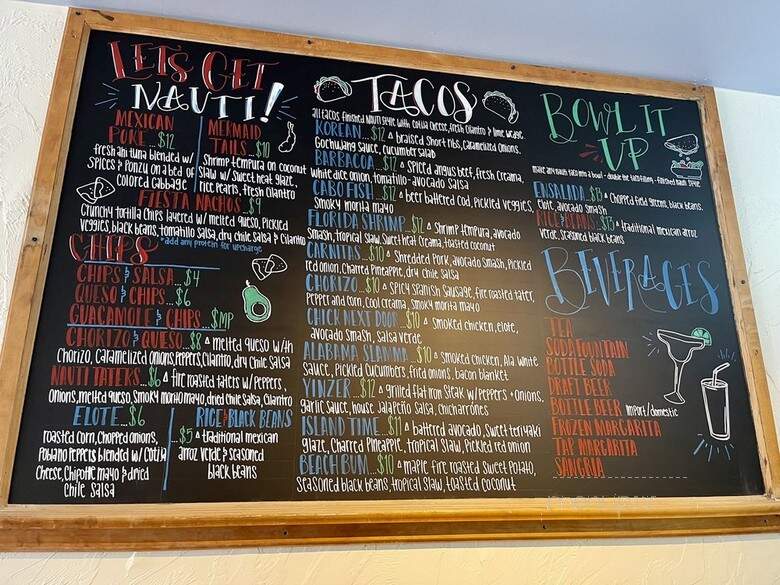 LETS GET
NAUTI!
MEXICAN
POKE...$12
fresh ahi tuna blended w/
spices & Ponzu on a bed of
colored cabbage
MERMAID
TAILS...$10
Shrimp tempura on coconut
Slaw w/ sweet heat glaze,
rice pearls, fresh cilantro
FIESTA NACHOS...$9
Crunchy tortilla chips layered w/ melted queso, Pickled
veggies, black beans, tomatillo salsa, dry chile salsa & cilantro
*add any protein for upcharge
CHIPS
CHIPS & SALSA...$4
QUESO & CHIPS...$6
GUACAMOLE & CHIPS...$MP
CHORIZO & QUESO...$8 ▵ melted queso with
Chorizo, Caramelized onions, peppers, cilantro, dry chile salsa
NAUTI TATERS...$6 ▵ fire roasted taters w/ peppers,
onions, melted queso, smoky morita mayo, dried chile salsa, cilantro
ELOTE...$6
roasted corn, chopped onions,
Poblano Peppers blended w/ Cotija
Cheese, Chipotle mayo & dried
chile salsa
RICE & BLACK BEANS
...$5 ▵ traditional mexican
arroz verde & seasoned
black beans
TACOS
all tacos finished NAUTI style with cotija cheese, fresh cilantro & lime wedge
KOREAN...$12 ▵ braised short ribs, caramelized onions,
Gochujang sauce, cucumber salad
BARBACOA...$12 ▵ spiced angus beef, fresh creama,
white dice onion, tomatillo-avocado salsa
CABO FISH...$12 ▵ beer battered cod, pickled veggies,
smoky morita mayo
FLORIDA SHRIMP...$12 ▵ shrimp tempura, avocado
smash, tropical slaw, sweet heat creama, toasted coconut
CARNITAS...$10 ▵ Shredded Pork, avocado smash, pickled
red onion, charred pineapple, dry chile salsa
CHORIZO...$10 ▵ spicy Spanish Sausage, fire roasted tater,
pepper and corn, cool creama, smoky morita mayo
CHICK NEXT DOOR...$10 ▵ smoked chicken, elote,
avocado smash, salsa verde
ALABAMA SLAMMA...$10 ▵ smoked chicken, Ala. white
sauce, pickled cucumbers, fried onions, bacon blanket
YINZER...$12 ▵ grilled flat iron steak w/ peppers + onions,
garlic sauce, house jalapeño salsa, chicharrónes
ISLAND TIME...$11 ▵ battered avocado, sweet teriyaki
glaze, charred pineapple, tropical slaw, pickled red onion
BEACH BUM...$10 ▵ maple fire roasted sweet potato,
seasoned black beans, tropical slaw, toasted coconut
BOWL IT
UP
make any nauti taco into a bowl - double the taco filling - finished nauti style
ENSALADA...$13 ▵ Chopped field greens, black beans,
elote, avocado smash
RICE & BEANS...$13 ▵ traditional mexican arroz
verde, seasoned black beans
BEVERAGES
TEA
SODA FOUNTAIN
BOTTLE SODA
DRAFT BEER
BOTTLE BEER import/domestic
FROZEN MARGARITA
TAP MARGARITA
SANGRIA